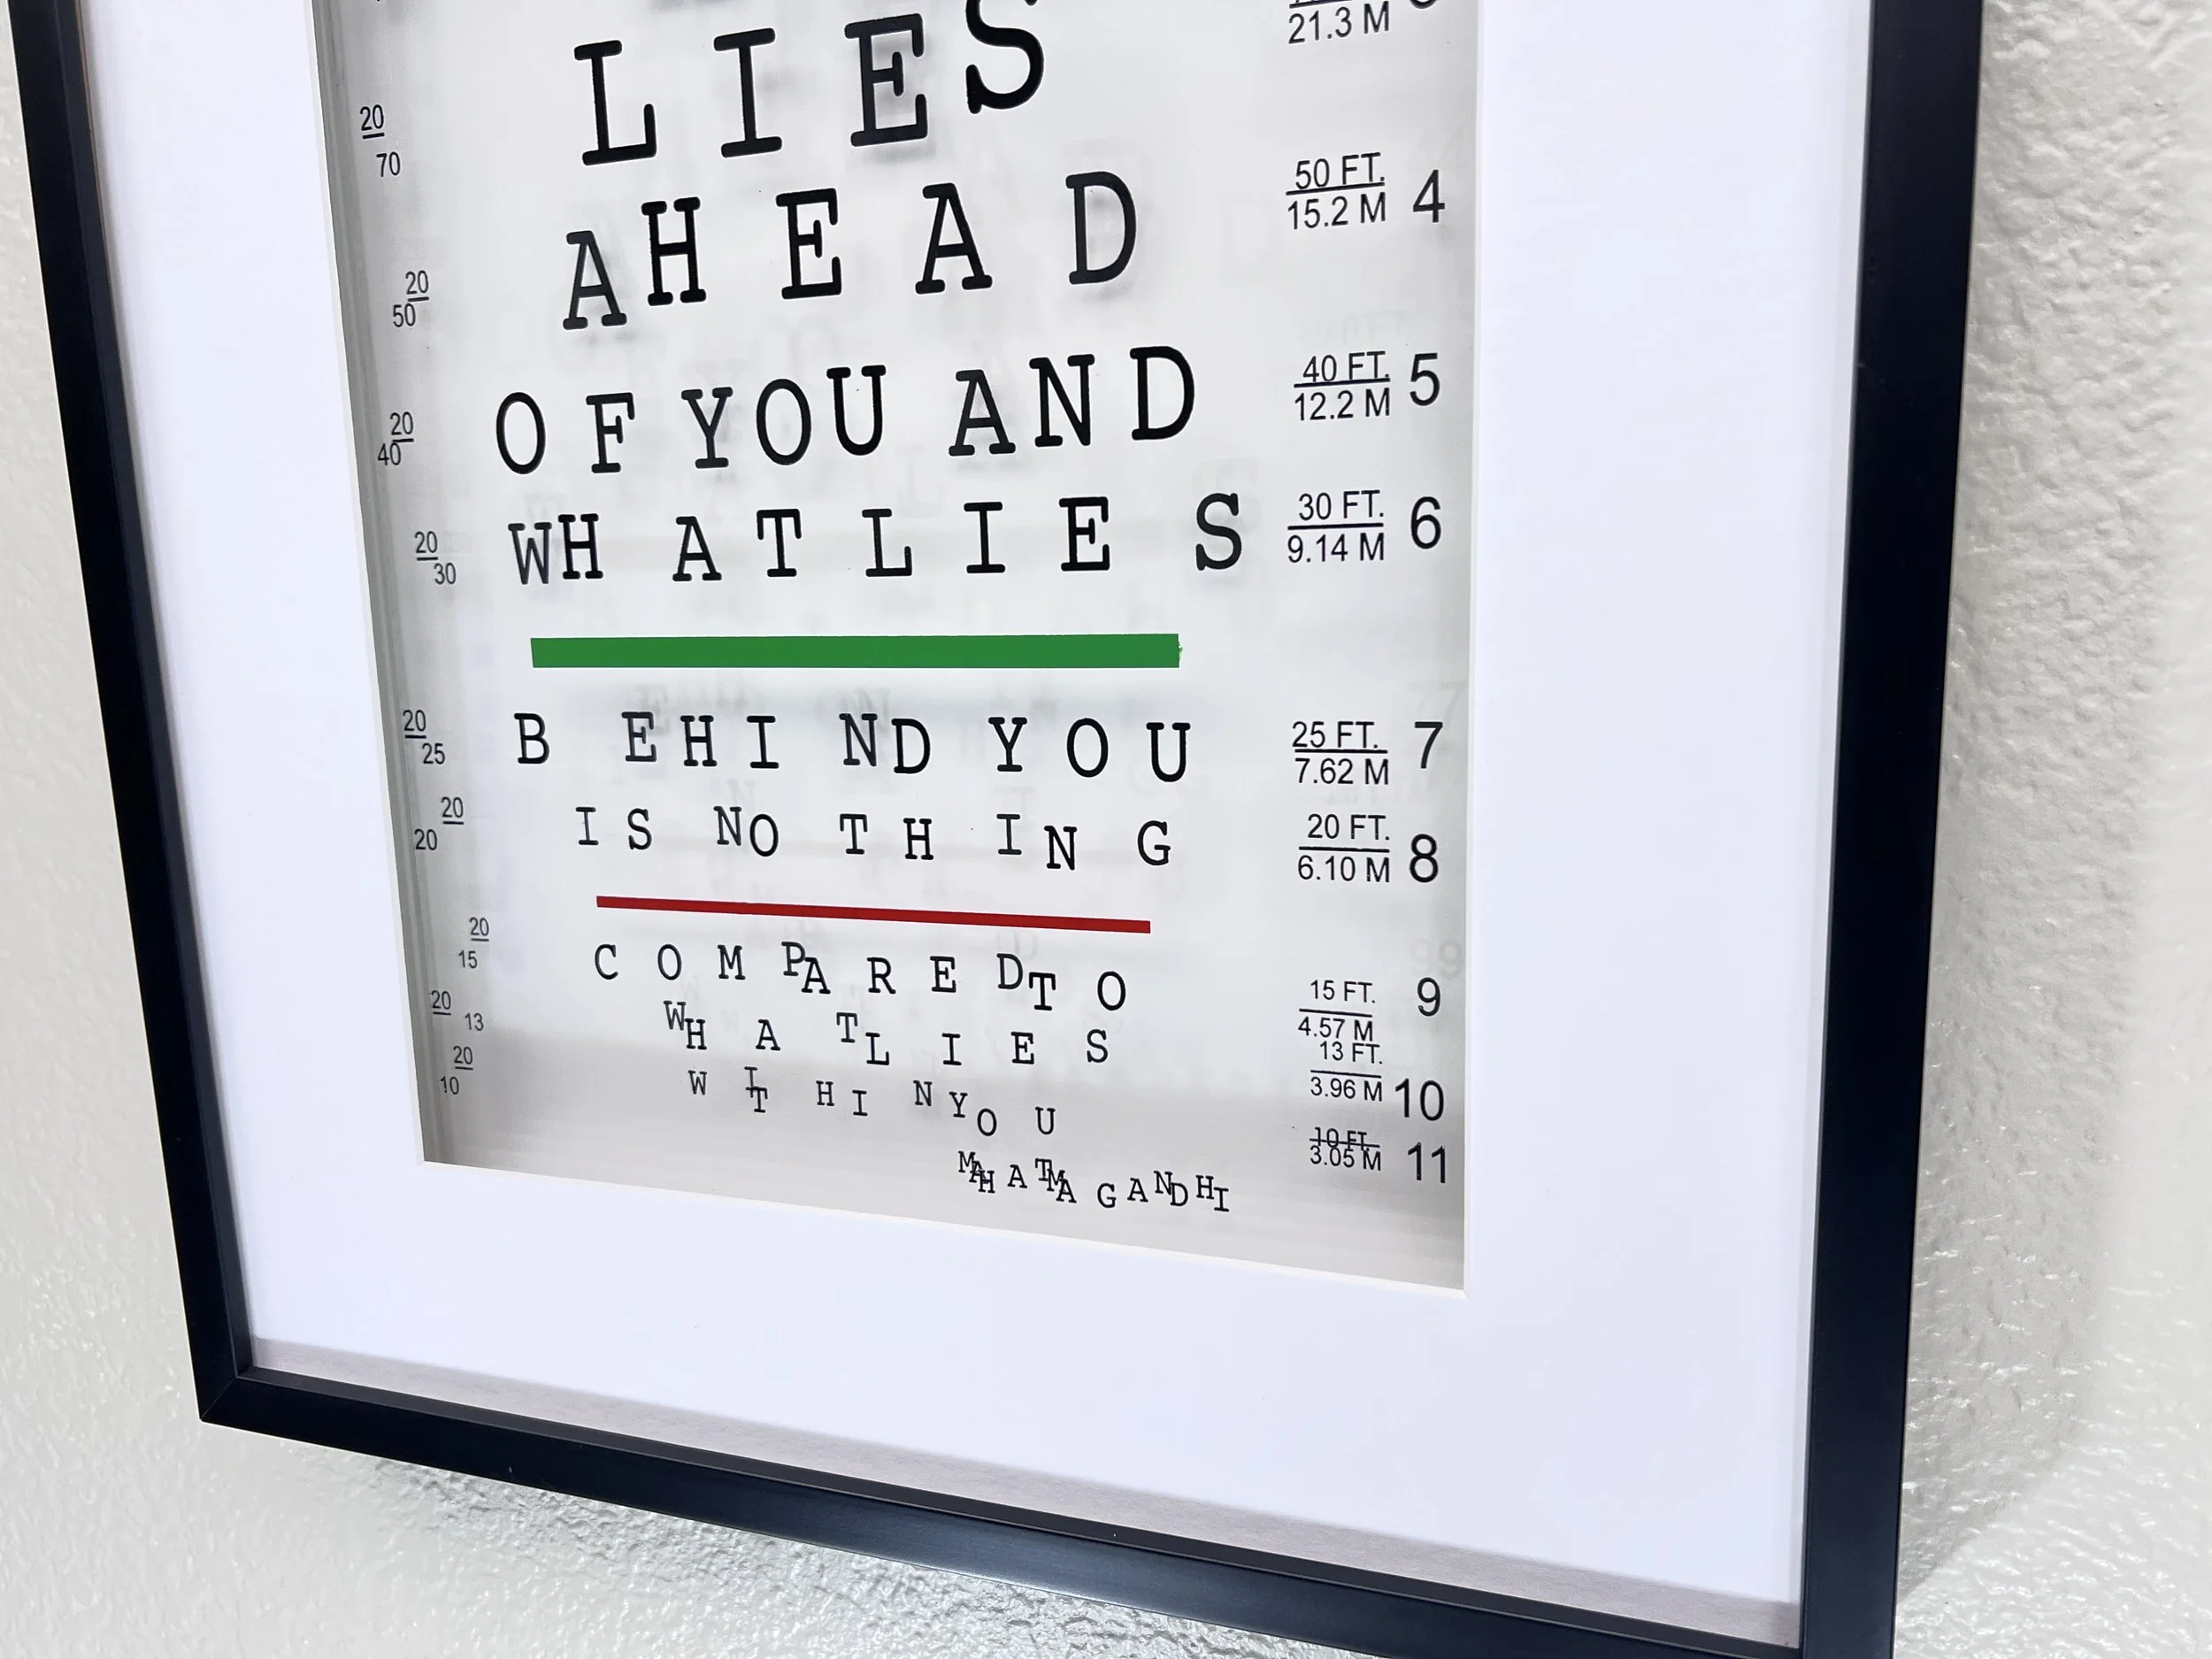 21.3 M
LIES
20
70
AHEAD
50 FT.
15.2 M
4
20
50
OF YOU AND
40 FT.
12.2 M
5
20
40
WHAT LIES
30 FT.
9.14 M
6
20
30
BEHIND YOU
25 FT.
7.62 M
7
20
25
IS NOTHING
20 FT.
6.10 M
8
20
20
COMPARED TO
15 FT.
4.57 M
9
20
15
WHAT LIES
13 FT.
3.96 M
10
20
13
WITHIN YOU
10 FT.
3.05 M
11
20
10
MAHATMA GANDHI